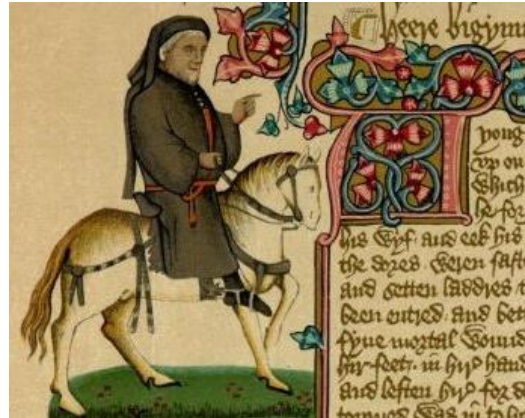 heere bigynn
A
yong
vp on
Which
he for
his wyf and eek his
the dores weren faste
and setten laddres t
been entred and bet
fyue mortal wound
hir feet in hir hand
and leften hir for d